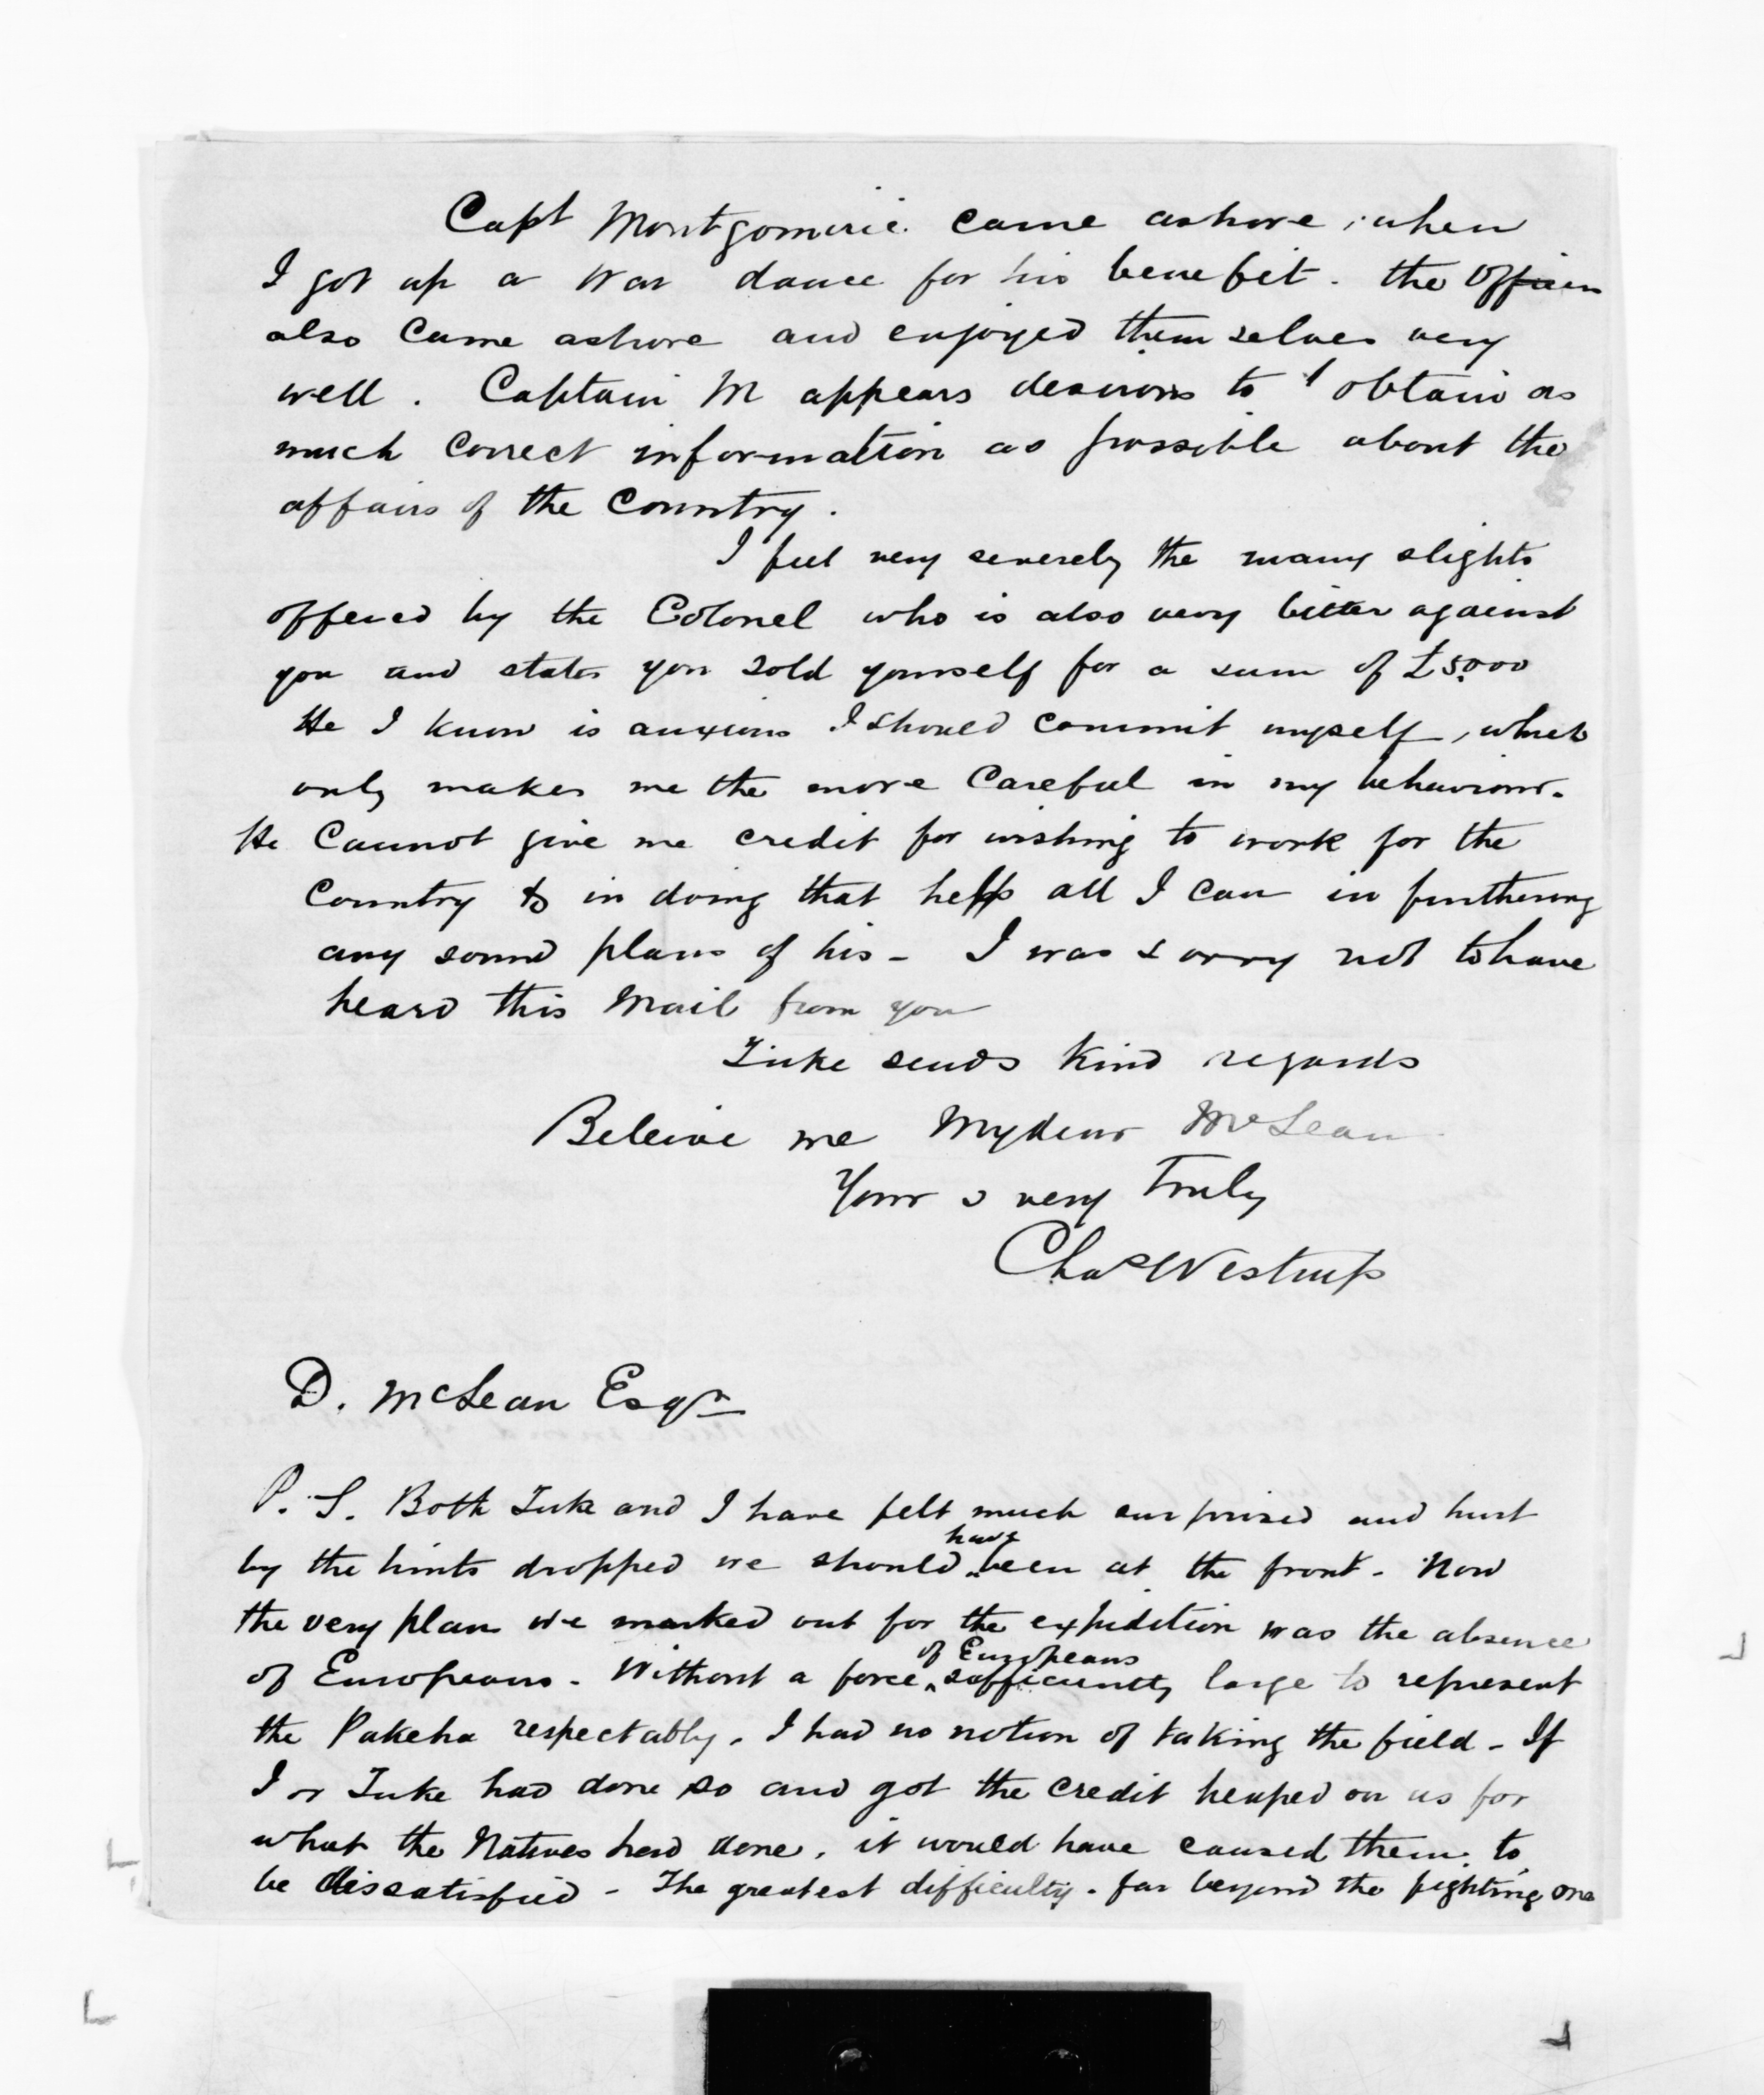 Capt Montgomerie came ashore, when
I got up a War dance for his benefit. the Officers
also came ashore and enjoyed themselves very
well. Captain M appears desirous to obtain as
much correct information as possible about the
affairs of the Country.
I feel very severely the many slights
offered by the Colonel who is also very bitter against
you and states you sold yourself for a sum of £5000
He I know is anxious I should commit myself, which
only makes me the more Careful in my behaviour.
He Cannot give me credit for wishing to work for the
Country & in doing that help all I can in furthering
any sound plans of his - I was sorry not to have
heard this Mail from you
Tuke sends Kind regards
Beleive me My dear McLean
Yours very Truly
Chas Westrup
D. McLean Esqr
P. S. Both Tuke and I have felt much surprised and hurt
by the hints dropped we should have been at the front. Now
the very plan we marked out for the expedition was the absence
of Europeans. Without a force of Europeans sufficiently large to represent
the Pakeha respectably, I had no notion of taking the field - If
I or Tuke had done so and got the credit heaped on us for
what the Natives had done, it would have caused them to
be dissatisfied - The greatest difficulty. far beyond the fighting one